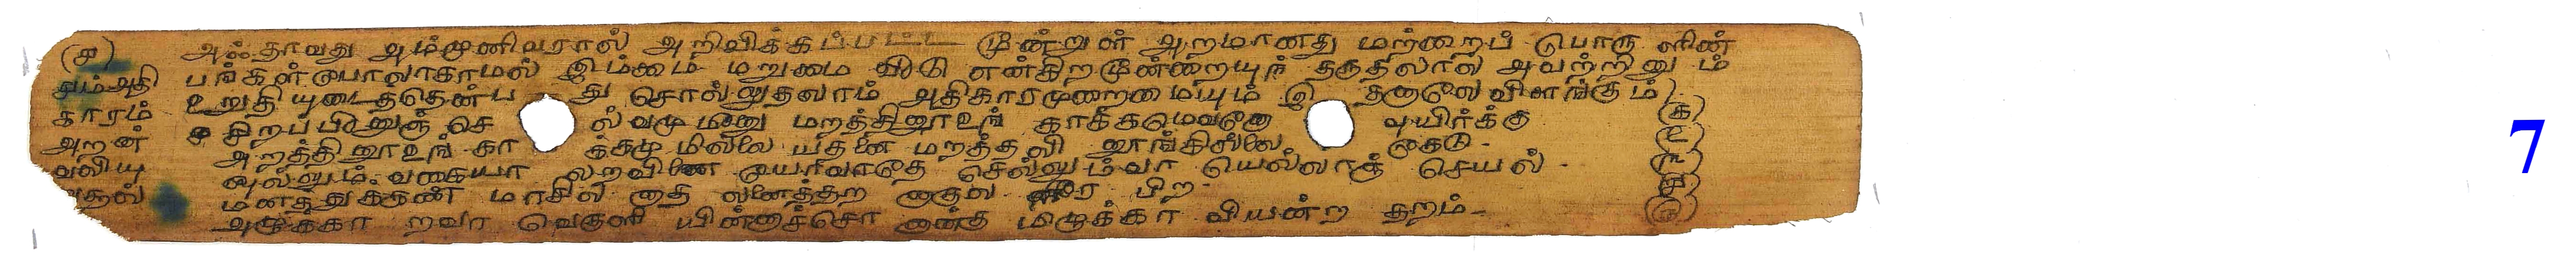 (ச) அஃதாவது அம்முனிவரால் அறிவிக்கப்பட்ட மூன்றுள் அறமானது மற்றைப் பொரு ளின்
தும் அதி பங்கள் போலாகாமல் இம்மை மறுமை வீடு என்கிற மூன்றையுந் தருதிலால் அவற்றினு ம்
காரம் உறுதியுடைத்தென்ப து சொல்லுதலாம் அதிகாரமுறைமையும் இ தனானே விளங்கும்
அறன் சிறப்பினுஞ் செ ல்வமு மீனு மறத்தினூஉங் காக்கமெவனோ வுயிர்க்கு (க)
வலியு அறத்தினூஉங் கா க்கமு மில்லை யதனை மறத்தலி னூங்கில்லை கேடு (உ)
றுத்தல் ஒல்லும் வகையா லறவினை யோவாதே செல்லும்வா யெல்லாஞ் செயல் (ங)
மனத்துக்கண் மாசில னாத லனைத்தற னாகுல நீர பிற (ச)
அழுக்கா றவா வெகுளி யின்னாச்சொ னான்கு மிழுக்கா வியன்ற தறம் (ரு)
7